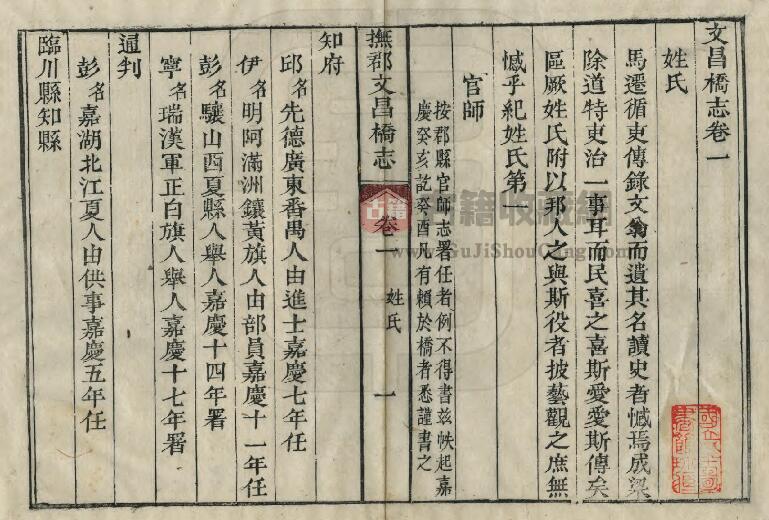 文昌橋志卷一
姓氏
馬遷循吏傳錄文翁而遺其名讀史者憾焉成梁
除道特吏治一事耳而民喜之喜斯愛愛斯傳矣
區厥姓氏附以邦人之與斯役者披藝觀之庶無
憾乎紀姓氏第一
官師
按郡縣官師志署任者例不得書茲帙起嘉
慶癸亥訖癸酉凡有賴於橋者悉謹書之
撫郡文昌橋志 卷一 姓氏 一
知府
邱名先德廣東番禺人由進士嘉慶七年任
伊名明阿滿洲鑲黃旗人由部員嘉慶十一年任
彭名驤山西夏縣人舉人嘉慶十四年署
寧名瑞漢軍正白旗人舉人嘉慶十七年署
通判
彭名嘉湖北江夏人由供事嘉慶五年任
臨川縣知縣
古籍
書籍收藏網
www.GuJiShouCang.com